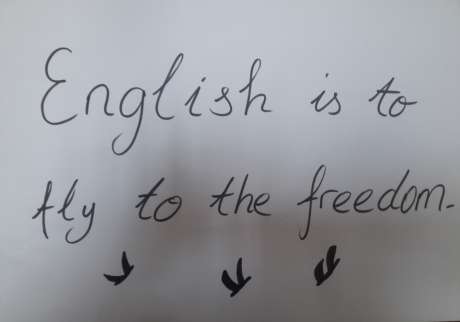 English is to
fly to the freedom.